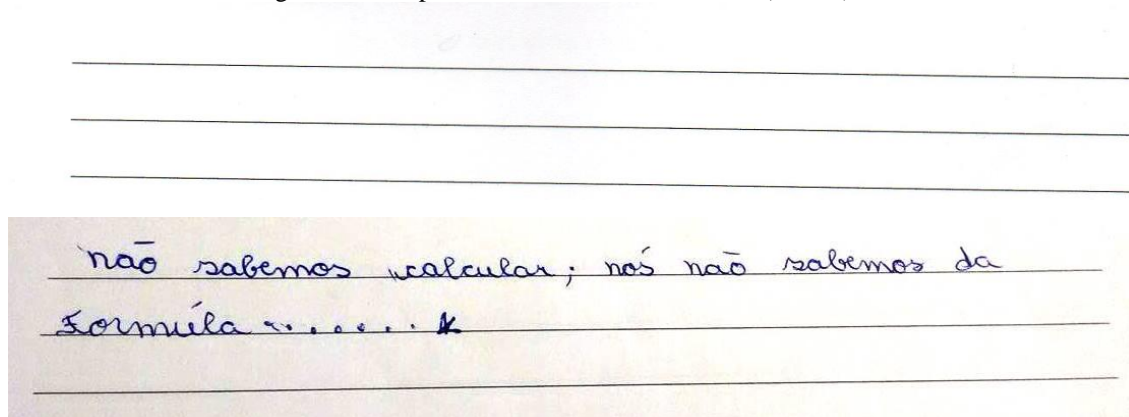 não sabemos calcular; nós não sabemos da
Formúla .......